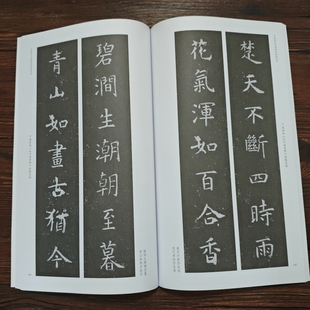 楚天不斷四時雨
花氣渾如百合香
碧澗生潮朝至暮
青山如畫古猶今